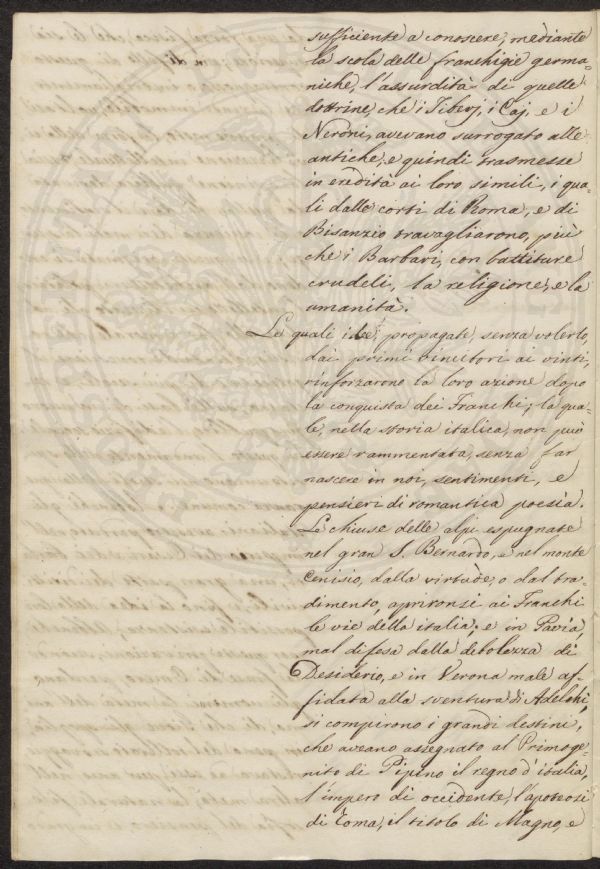 sufficiente a conoscere, mediante
la scola delle franchigie germa-
niche, l'assurdità di quelle
dottrine, che i Tiberj, i Caj, e i
Neroni, avevano surrogato alle
antiche, e quindi trasmesse
in eredità ai loro simili, i qua-
li dalle corti di Roma, e di
Bisanzio travagliarono, più
che i Barbari, con battiture
crudeli, la religione, e la
umanità.
Le quali idee, propagate, senza volerlo,
dai primi vincitori ai vinti,
rinforzarono la loro azione dopo
la conquista dei Franchi; la qua-
le, nella storia italica, non può
essere rammentata, senza far
nascere in noi, sentimenti, e
pensieri di romantica poesia.
Le chiuse delle alpi espugnate
nel gran S. Bernardo, e nel monte
Cenisio, dalla virtude, o dal tra-
dimento, aprironsi ai Franchi
le vie della italia; e in Pavia,
mal difesa dalla debolezza di
Desiderio, e in Verona male af-
fidata alla sventura di Adelchi,
si compirono i grandi destini,
che aveano assegnato al Primoge-
nito di Pipino il regno d'italia,
l'impero di occidente, l'apoteosi
di Roma, il titolo di Magno, e